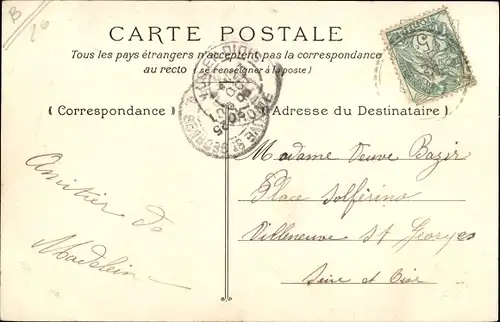 B
CARTE POSTALE
Tous les pays étrangers n'acceptent pas la correspondance
au recto (se renseigner à la poste)
(Correspondance)
Adresse du Destinataire)
Amitier de
Madeleine
Madame Veuve Bazir
Place Solférino
Villeneuve St Georges
Seine et Oise